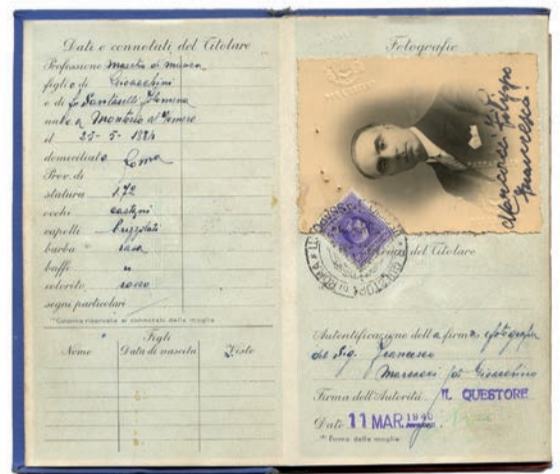 Dati e connotati del Titolare
Professione maestro di musica
figlio di Gioacchino
e di fu Santarelli Filomena
nato a Montorio al Vomano
il 25-5-1884
domiciliato Roma
Prov. di
statura 1.72
occhi castani
capelli brizzolati
barba rasa
baffi "
colorito roseo
segni particolari
Colonna riservata ai connotati della moglie
Figli
Nome Data di nascita Visto
Fotografie
Francesco
del Titolare
QUESTURA DI ROMA
Autentificazione della firma e fotografia
del Sig. Francesco
fu Gioacchino
Firma dell'Autorità IL QUESTORE
Data 11 MAR. 1940
Firma della moglie